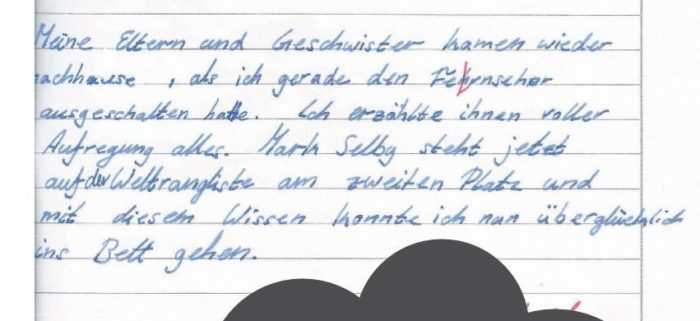 Meine Eltern und Geschwister kamen wieder
nachhause, als ich gerade den Fernseher
ausgeschalten hatte. Ich erzählte ihnen voller
Aufregung alles. Mark Selby steht jetzt
auf der Weltrangliste am zweiten Platz und
mit diesem Wissen konnte ich nun überglücklich
ins Bett gehen.